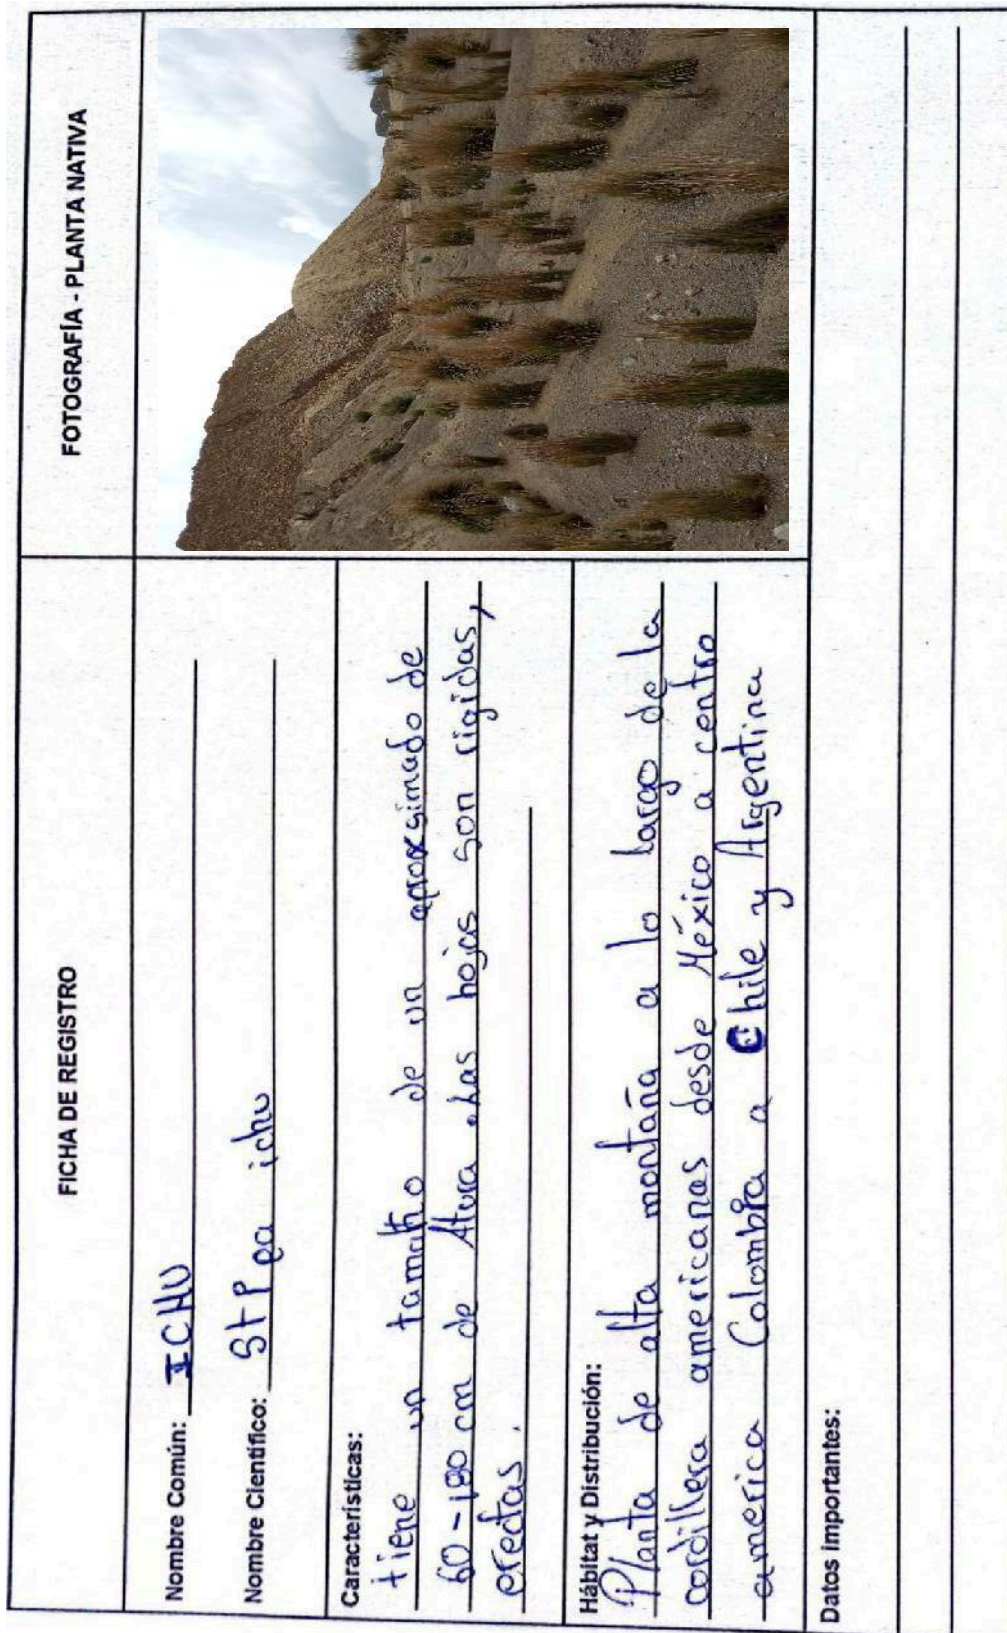 FICHA DE REGISTRO
FOTOGRAFÍA - PLANTA NATIVA
Nombre Común: ICHU
Nombre Científico: StPpa ichu
Características:
tiene un tamaño de un aproxsimado de
60-180 cm de Altura. Las hojas son rigidas,
erectas.
Hábitat y Distribución:
Planta de alta montaña a lo largo de la
cordillera americanas desde México a centro
america Colombia a Chile y Argentina
Datos importantes: